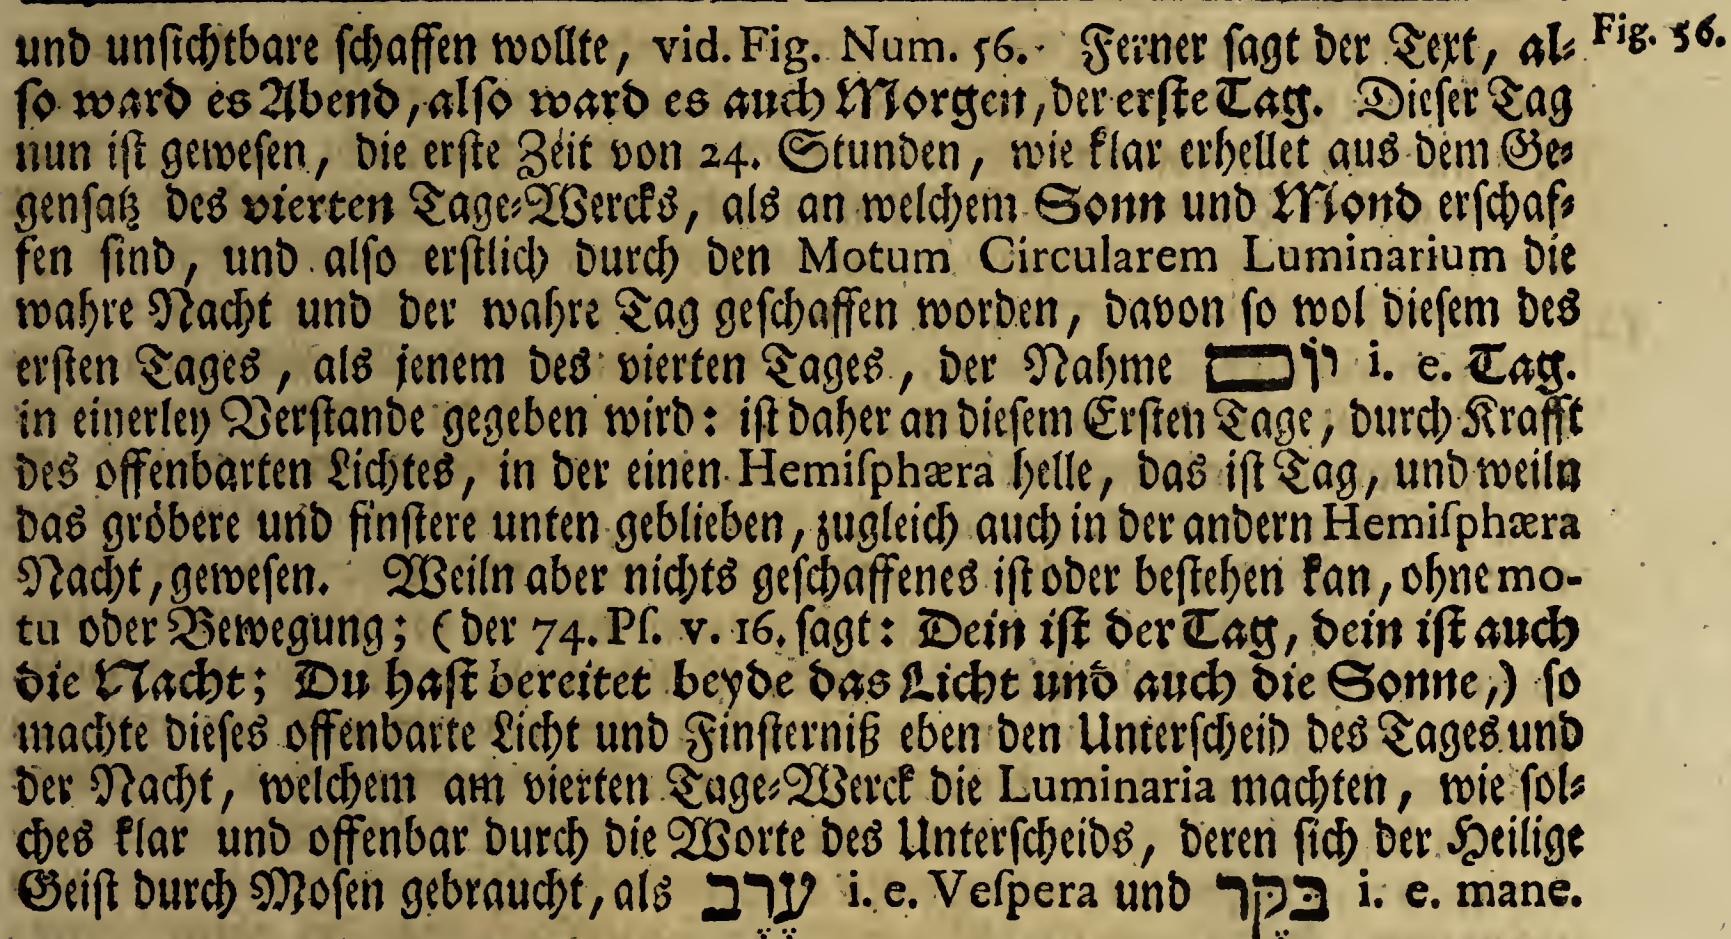 und unſichtbare ſchaffen wollte, vid. Fig. Num. 56. Ferner ſagt der Text, al⸗ Fig. 56.
ſo ward es Abend, alſo ward es auch Morgen, der erſte Tag. Dieſer Tag
nun iſt geweſen, die erſte Zeit von 24. Stunden, wie klar erhellet aus dem Ge⸗
genſatz des vierten Tage⸗Wercks, als an welchem Sonn und Mond erſchaf⸗
fen ſind, und alſo erſtlich durch den Motum Circularem Luminarium die
wahre Nacht und der wahre Tag geſchaffen worden, davon ſo wol dieſem des
erſten Tages, als jenem des vierten Tages, der Nahme יוֹם i. e. Tag.
in einerley Verſtande gegeben wird: iſt daher an dieſem Erſten Tage, durch Krafft
des offenbarten Lichtes, in der einen Hemiſphæra helle, das iſt Tag, und weiln
das gröbere und finſtere unten geblieben, zugleich auch in der andern Hemiſphæra
Nacht, geweſen. Weiln aber nichts geſchaffenes iſt oder beſtehen kan, ohne mo-
tu oder Bewegung; (der 74. Pſ. v. 16. ſagt: Dein iſt der Tag, dein iſt auch
die Nacht; Du haſt bereitet beyde das Licht und auch die Sonne,) ſo
machte dieſes offenbarte Licht und Finſterniß eben den Unterſcheid des Tages und
der Nacht, welchem am vierten Tage⸗Werck die Luminaria machten, wie ſol⸗
ches klar und offenbar durch die Worte des Unterſcheids, deren ſich der Heilige
Geiſt durch Moſen gebraucht, als עֶרֶב i. e. Veſpera und בקֶר i. e. mane.